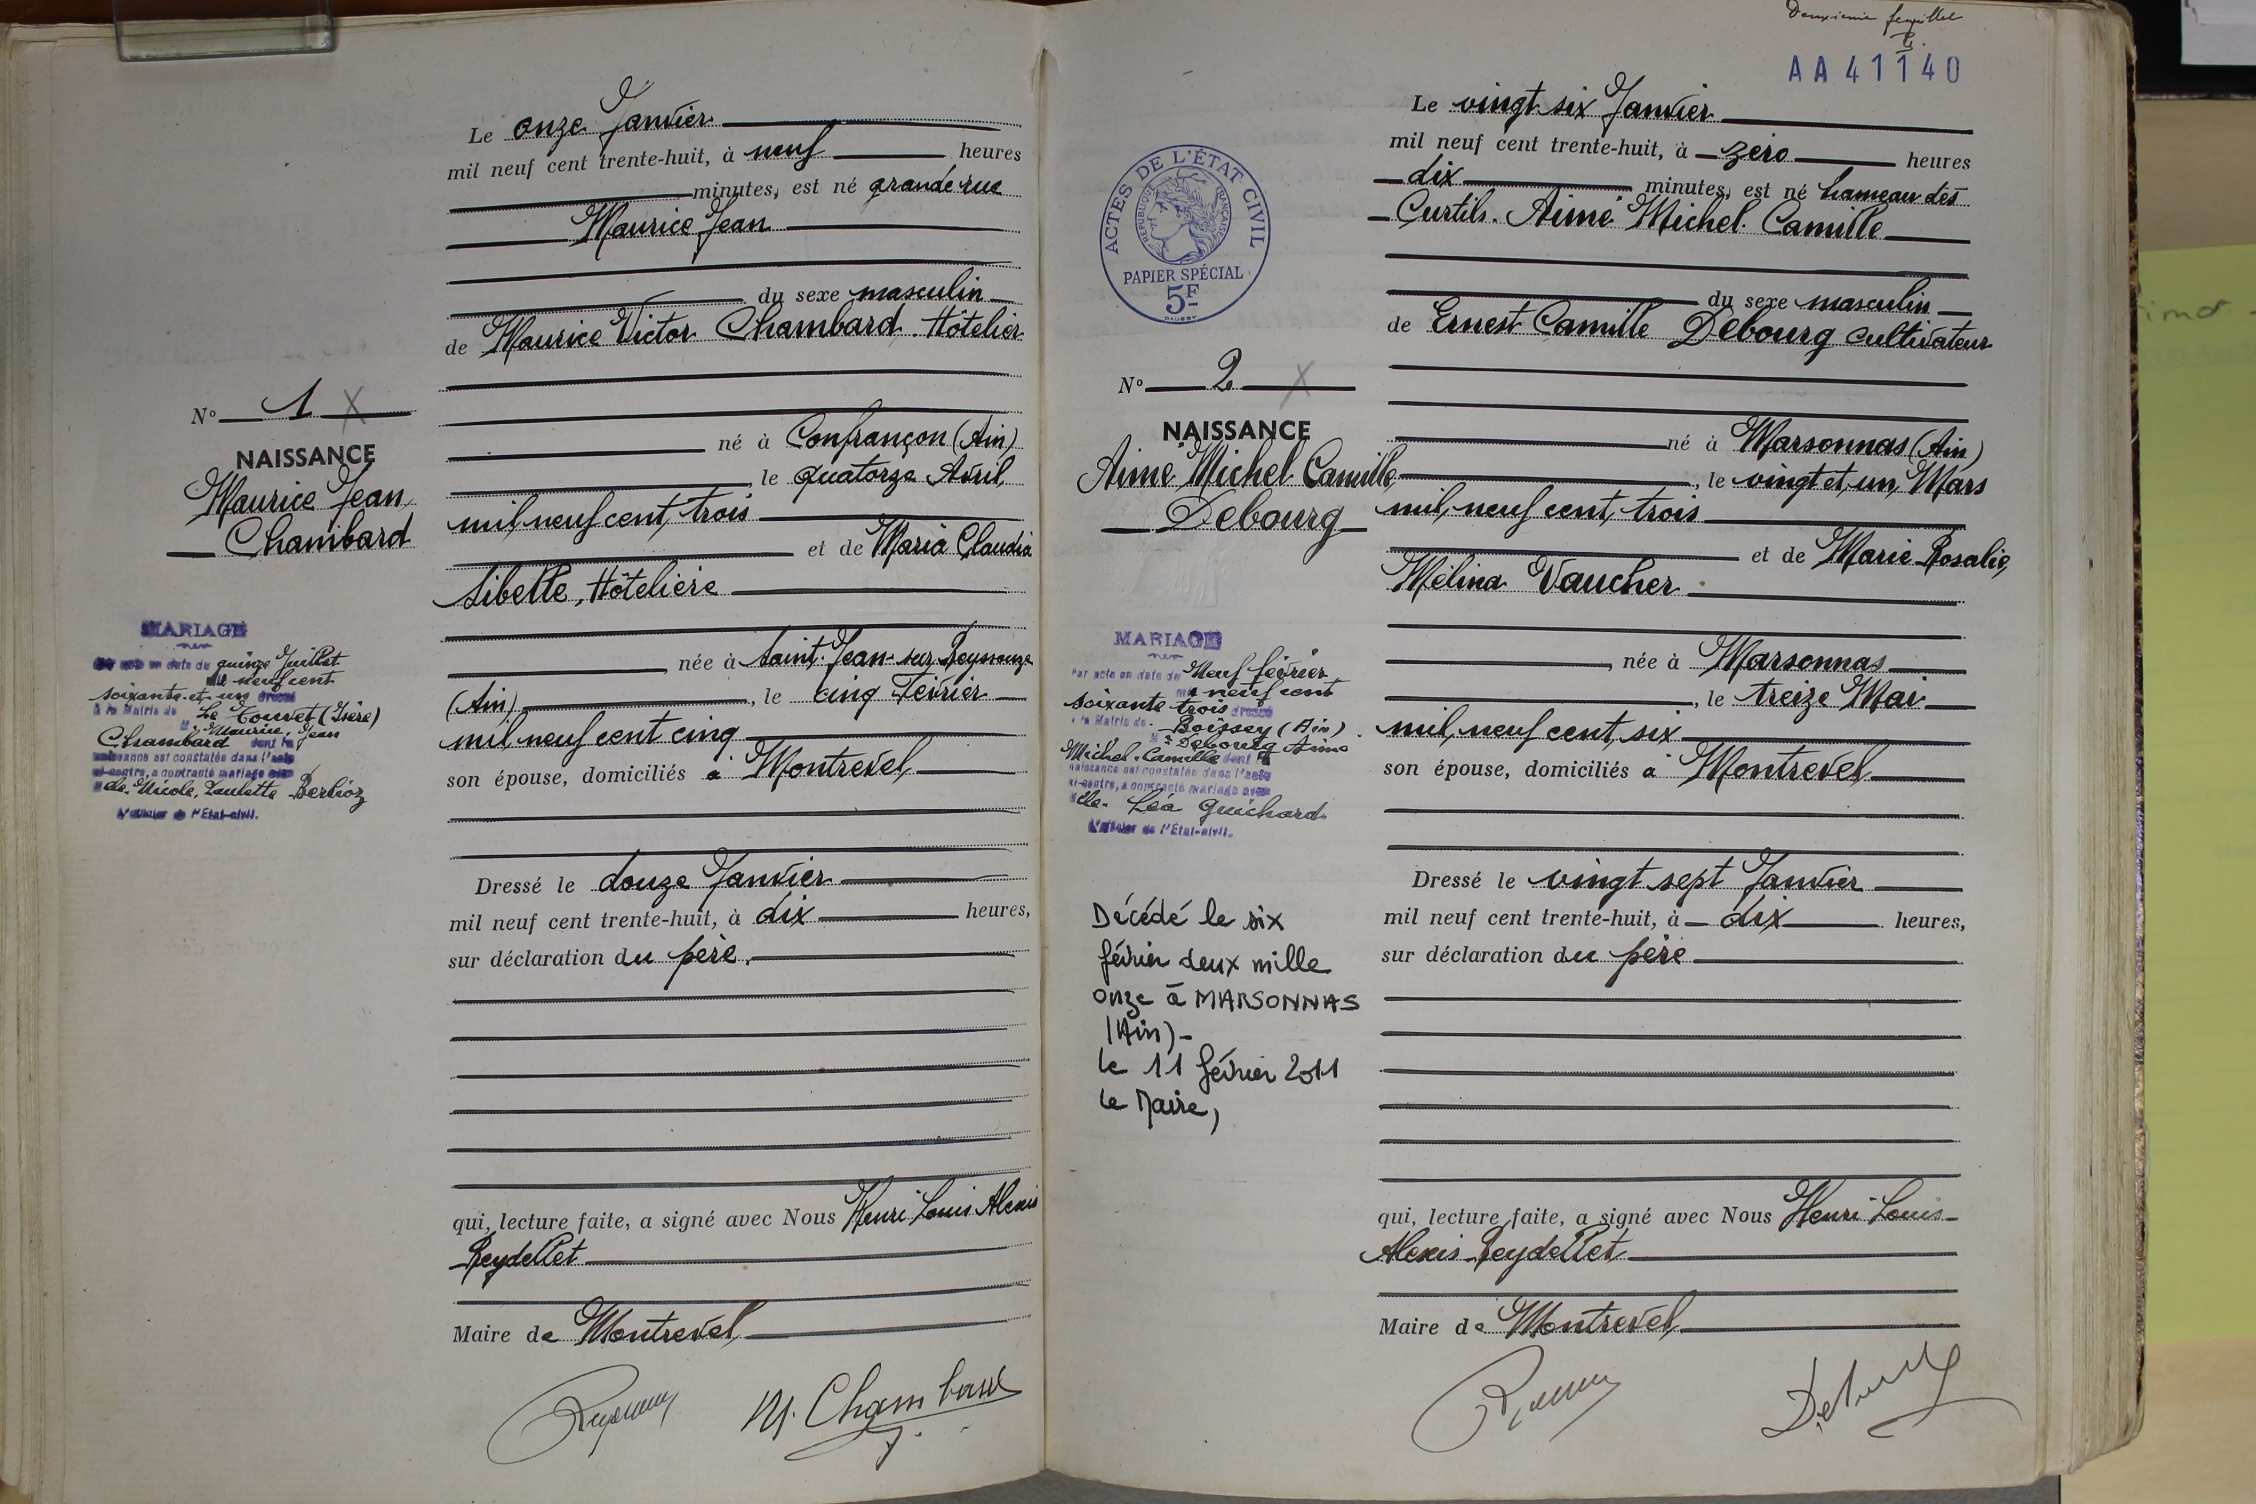 Le onze Janvier
mil neuf cent trente-huit, à neuf heures
minutes, est né grande rue
Maurice Jean
du sexe masculin
de Maurice Victor Chambard Hôtelier
né à Confrançon (Ain)
, le quatorze Avril
mil neuf cent trois
et de Maria Claudia
Sibelle, Hôtelière
née à Saint-Jean-sur-Reyssouze
(Ain), le cinq Février
mil neuf cent cinq
son épouse, domiciliés à Montrevel
Dressé le douze Janvier
mil neuf cent trente-huit, à dix heures,
sur déclaration du père.
qui, lecture faite, a signé avec Nous Henri Louis Alexis
Reydellet
Maire de Montrevel
M. Chambard
No 1 X
NAISSANCE
Maurice Jean
Chambard
MARIAGE
Par acte en date du quinze Juillet
mil neuf cent
soixante et un dressé
à la Mairie de Le Touvet (Isère)
Mr Maurice, Jean
Chambard dont la
naissance est constatée dans l'acte
ci-contre, a contracté mariage avec
de. Nicole, Paulette Berlioz
L'officier de l'Etat-civil.
Deuxième feuillet
AA41140
ACTES DE L'ÉTAT CIVIL
RÉPUBLIQUE FRANÇAISE
PAPIER SPÉCIAL
5F
No 2 X
NAISSANCE
Aimé Michel Camille
Debourg
MARIAGE
Par acte en date du Neuf février
mil neuf cent
soixante trois dressé
à la Mairie de Boissey (Ain)
Mr Debourg Aimé
Michel. Camille dont la
naissance est constatée dans l'acte
ci-contre, a contracté mariage avec
Léa Guichard
L'officier de l'Etat-civil.
Décédé le six
février deux mille
onze à MARSONNAS
(Ain)-
le 11 février 2011
Le Maire,
Le vingt six Janvier
mil neuf cent trente-huit, à zéro heures
dix minutes, est né hameau des
Curtils. Aimé Michel Camille
du sexe masculin
de Ernest Camille Debourg cultivateur
né à Marsonnas (Ain)
, le vingt et un Mars
mil neuf cent trois
et de Marie Rosalie
Mélina Vaucher
née à Marsonnas
, le treize Mai
mil neuf cent six
son épouse, domiciliés à Montrevel
Dressé le vingt sept Janvier
mil neuf cent trente-huit, à dix heures,
sur déclaration du père
qui, lecture faite, a signé avec Nous Henri Louis
Alexis Reydellet
Maire de Montrevel